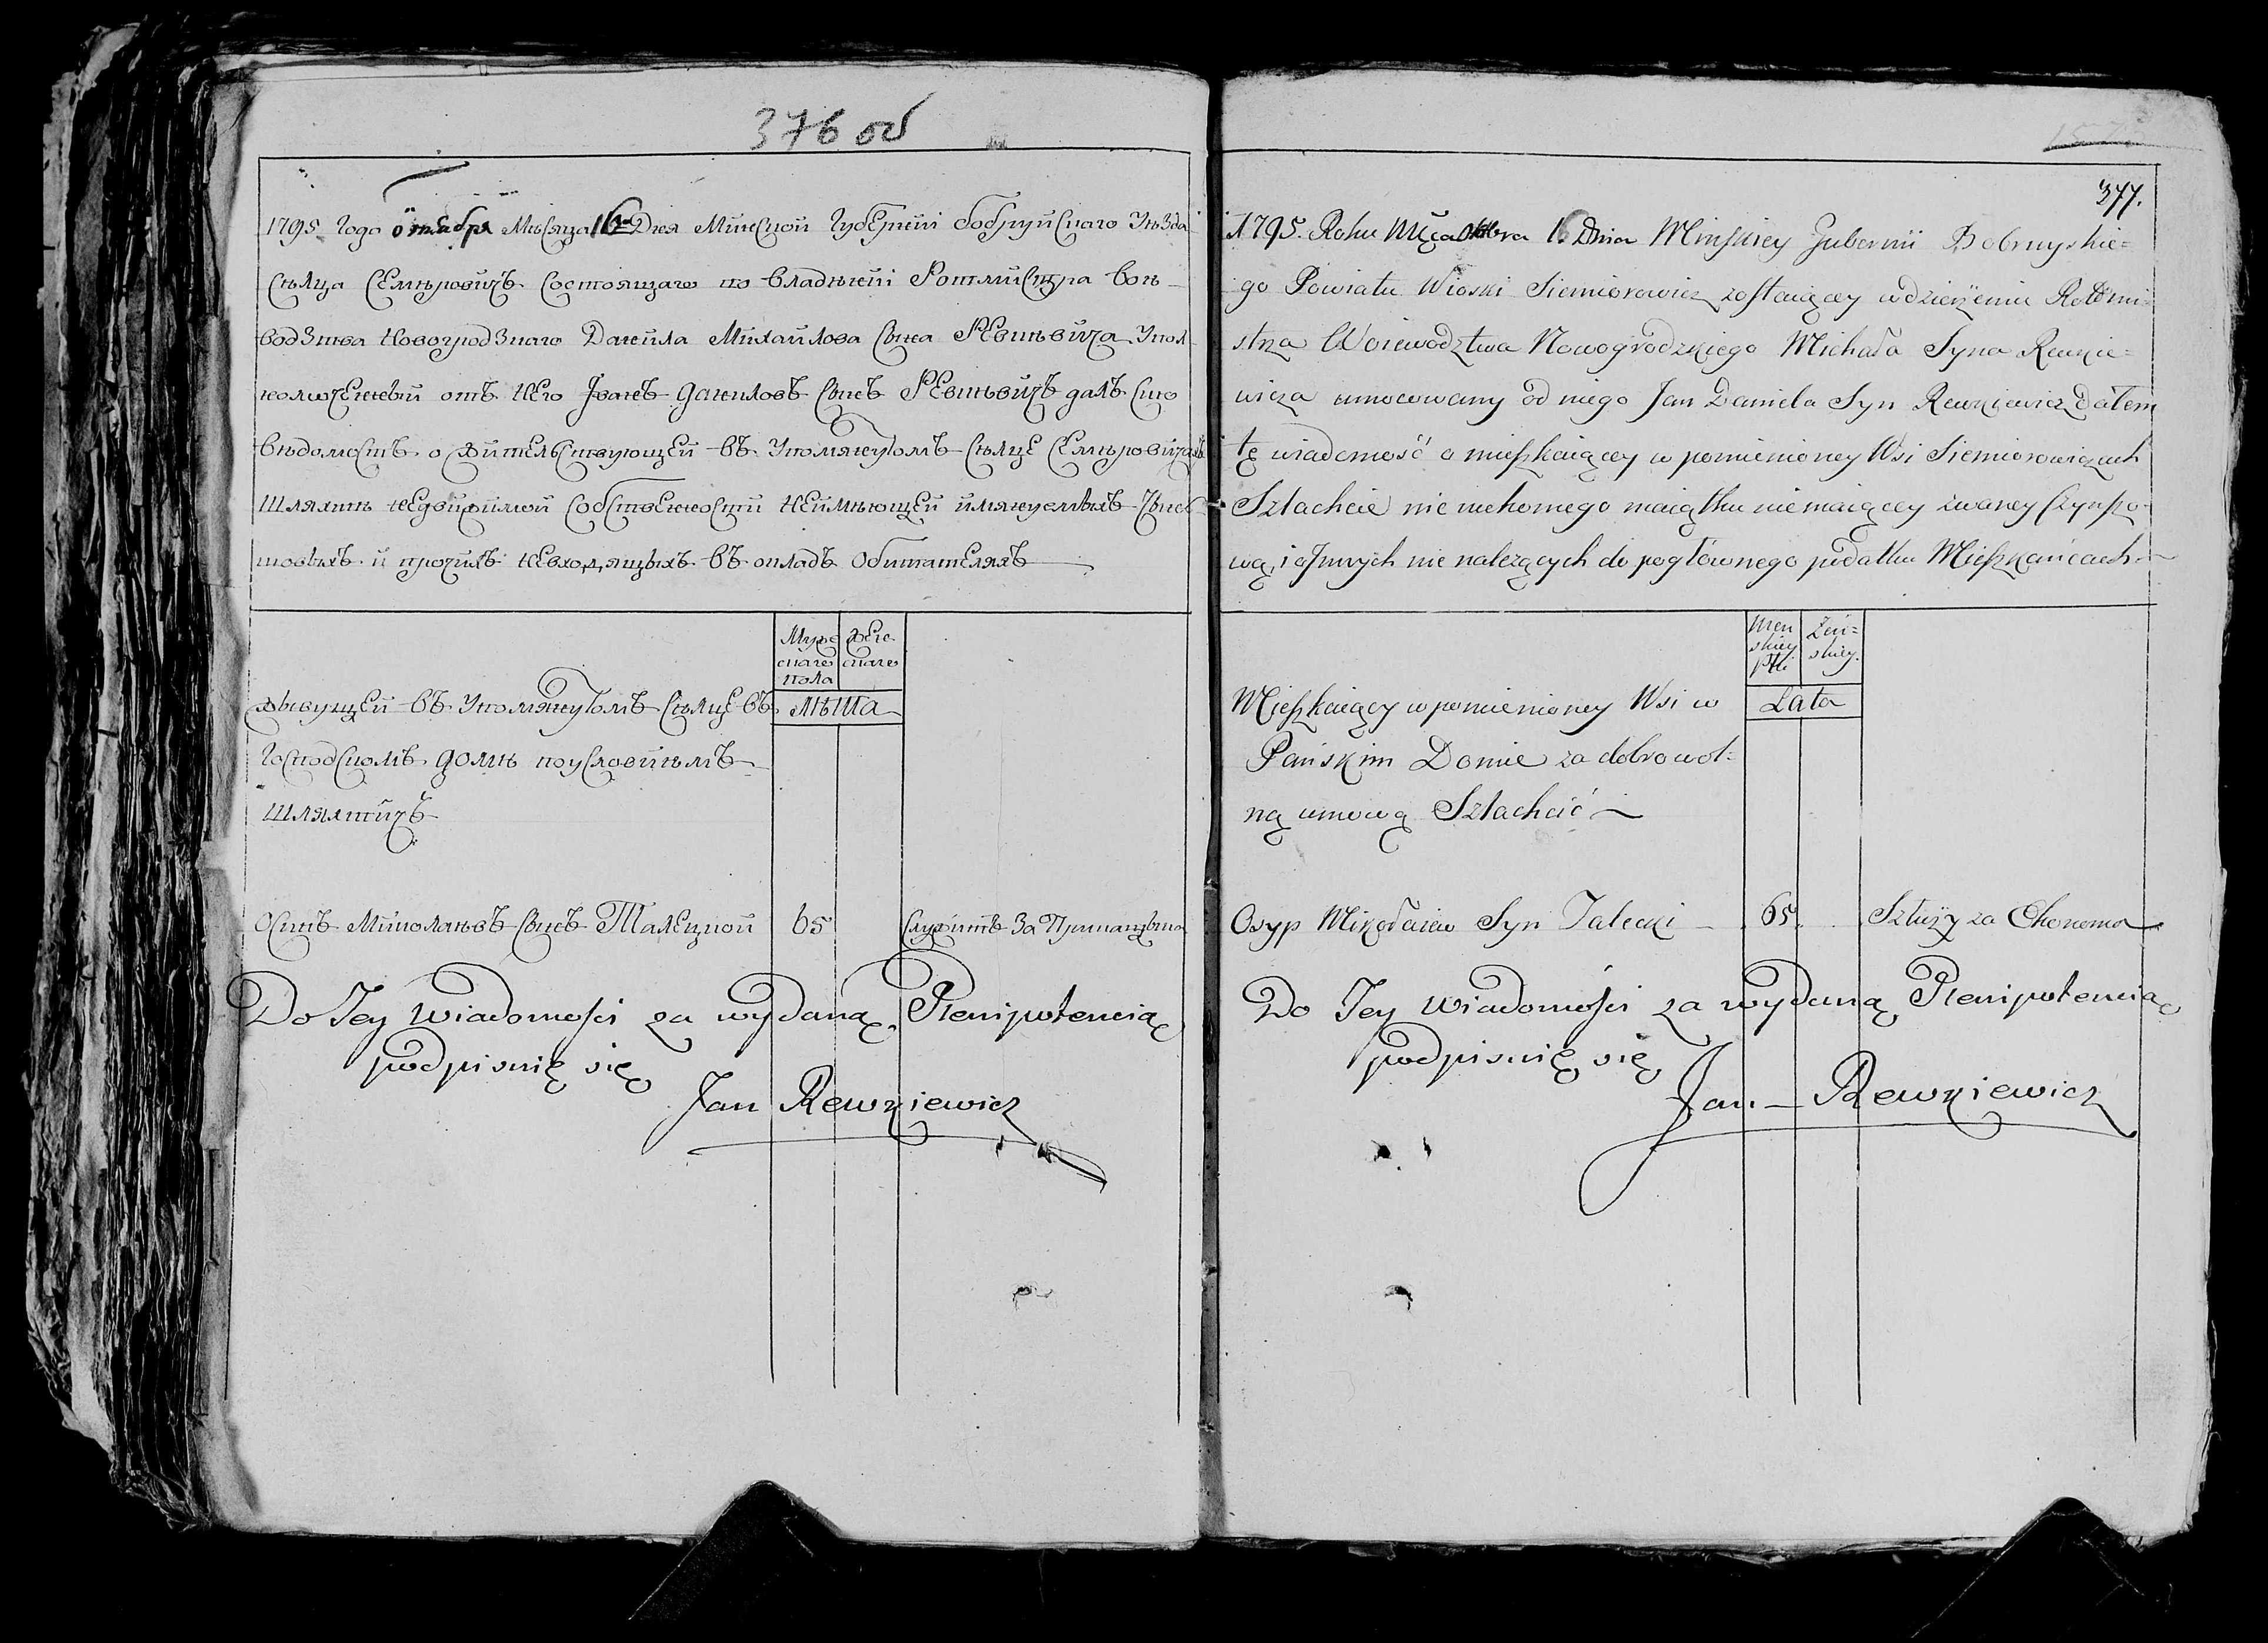 376 об
1795 Года октабря Мѣсяца 16 Дня Минской Губернїи бобруйскаго Уѣзда
Сѣлца Семѣровичъ Состоящаго по владѣнїи Ротмистра вое-
водзтва Новогродзкаго Данила Михайлова Сына Ревкѣвича Упол-
номоченный отъ Него Іванъ Даниловъ Сынъ Ревкѣвичъ далъ Сию
вѣдомость о жительствующей въ Упомянутомъ Сѣлце Семѣровичахъ
Шляхтѣ недвижимой Собственности Неимѣющей имянуемыхъ Чынъ
шовыхъ и прочихъ Невходящыхъ въ окладъ Обитателяхъ
Муж
скаго
пола
жен
скаго
лѣта
живущей въ Упомянутомъ Сѣлце въ
Господскомъ домѣ поусловиемъ
Шляхтичъ
Осипъ Миколаевъ Сынъ Талецкой 65 Служитъ За Прикащыка
Do Tey Wiadomości za wydaną Plenipotencią
podpisuię się
Jan Rewkiewicz
377.
1795. Roku Mca Oktobra 16 Dnia Minskiey Gubernii Bobruyskie=
go Powiatu Wioski Siemierowicz zostaiącey w dzierżeniu Rotmi=
strza Woiewodztwa Nowogrodzkiego Michała Syna Rewkie=
wicza umocowany od niego Jan Daniela Syn Rewkiewicz Dałem
tę wiadomość o mieszkaiącey w pomienioney Wsi Siemierowiczach
Szlachcie nie ruchomego maiątku niemaiącey zwaney Czynszo-
wą, i innych nie należących do pogłównego podatku Mieszkańcach
Męn
skiey
płci
Żeń=
skiey.
Lata
Mieszkaiący w pomienioney Wsi w
Pańskim Domie za dobrowol=
ną umową Szlachcić
Osyp Mikołaiew Syn Talecki 65. Służy za Ekonoma
Do Tey Wiadomości za wydaną Plenipotencią
podpisuię się
Jan Rewkiewicz